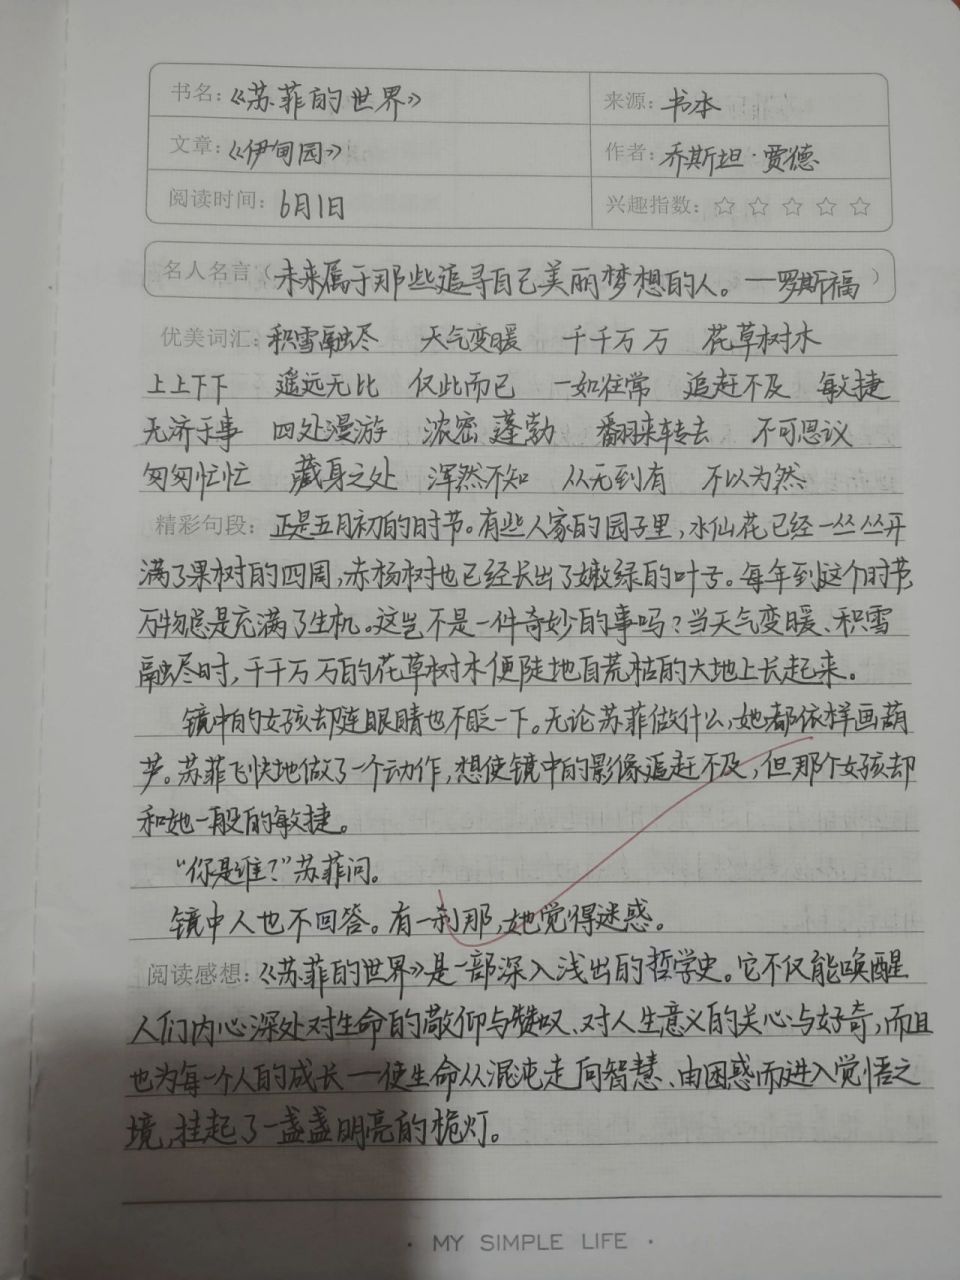 书名：《苏菲的世界》 来源：书本
文章：《伊甸园》 作者：乔斯坦·贾德
阅读时间：6月1日 兴趣指数：☆ ☆ ☆ ☆ ☆
名人名言（未来属于那些追寻自己美丽梦想的人。—罗斯福）
优美词汇：积雪融尽 天气变暖 千千万万 花草树木
上上下下 遥远无比 仅此而已 一如往常 追赶不及 敏捷
无济于事 四处漫游 浓密 蓬勃 翻来转去 不可思议
匆匆忙忙 藏身之处 浑然不知 从无到有 不以为然
精彩句段：正是五月初的时节。有些人家的园子里，水仙花已经一丛丛开
满了果树的四周，赤杨树也已经长出了嫩绿的叶子。每年到这个时节
万物总是充满了生机。这岂不是一件奇妙的事吗？当天气变暖、积雪
融尽时，千千万万的花草树木便陡地自荒枯的大地上长起来。
镜中的女孩却连眼睛也不眨一下。无论苏菲做什么，她都依样画葫
芦。苏菲飞快地做了一个动作，想使镜中的影像追赶不及，但那个女孩却
和她一般的敏捷。
“你是谁？”苏菲问。
镜中人也不回答。有一刹那，她觉得迷惑。
阅读感想：《苏菲的世界》是一部深入浅出的哲学史。它不仅能唤醒
人们内心深处对生命的敬仰与赞叹、对人生意义的关心与好奇，而且
也为每一个人的成长——使生命从混沌走向智慧、由困惑而进入觉悟之
境，挂起了一盏盏明亮的桅灯。
· MY SIMPLE LIFE ·